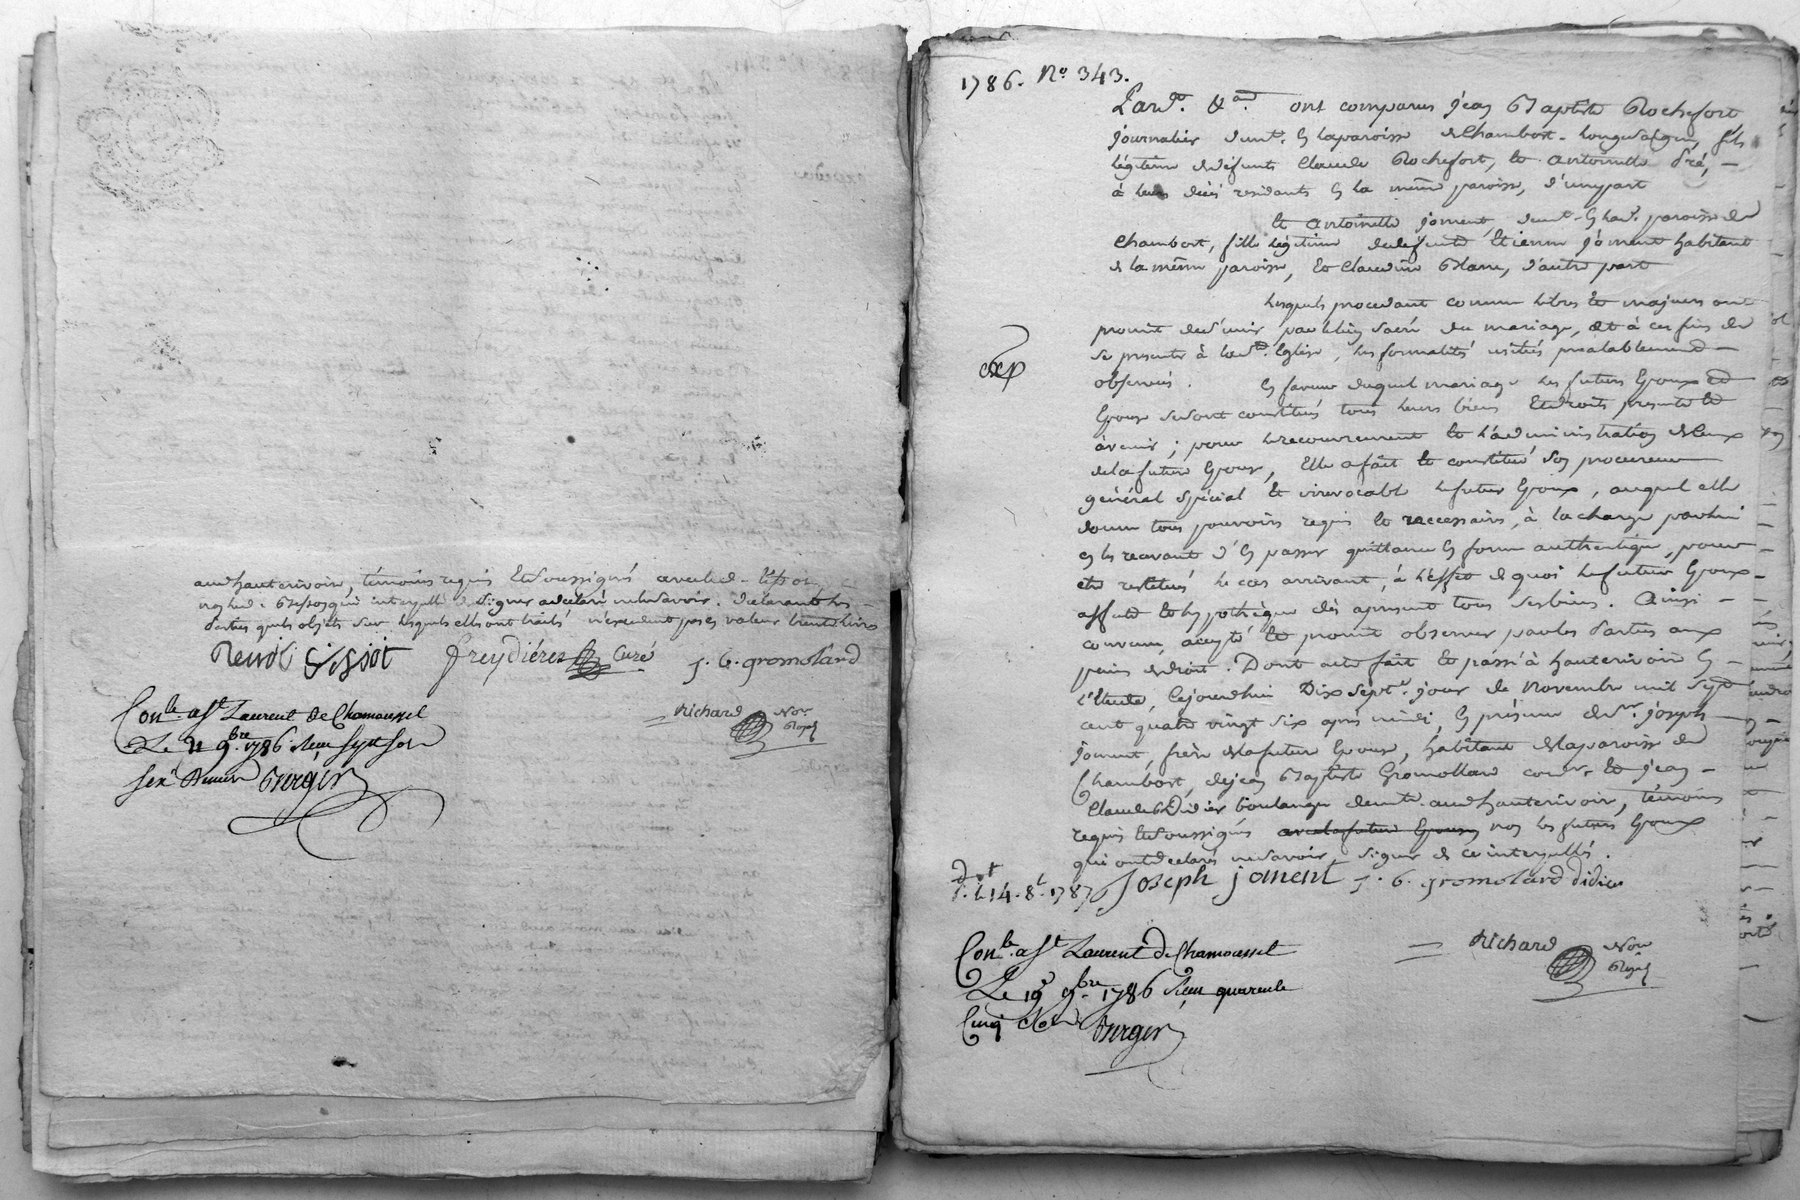 aud. hauterivoire, témoins requis et soussignés avec led. Tissot
non led. qui interpellé de signer a déclaré ne le savoir. déclarant les
Parties que les objets sur lesquels elles ont traité n'excedent pas en valeur trente livres
Tissot freydiéres Curé j. b. gromolard
Richard Nore Royal
Conlé a St Laurent de Chamousset
Le 21 9bre 1786. Reçu sept sols
six deniers Burgir
1786. No. 343.
Pard. &a. ont comparus jean Baptiste Rochefort,
journalier demt. en la paroisse de Chambost-Longessaigne, fils
légitime de défunts Claude Rochefort, et antoinette Pré,
à leurs décès residants en la même paroisse, d'une part
Et antoinette joment, demt. en lad. paroisse de
Chambost, fille légitime de defunt Etienne joment habitant
de la même paroisse, et Claudine Blanc, d'autre part
Lesquels procedant comme libres et majeurs ont
promit de s'unir par le lien sacré du mariage, et à ces fins de
se presenter à la Ste. Eglise, les formalités usitées préalablement
observées. En faveur duquel mariage les futurs Epoux et
Epouse se sont constitués tous leurs biens et droits présents et
à venir; pour le recouvrement et l'administration de ceux
de la future Epouse, Elle a fait et constitué son procureur
général spécial et irrevocable le futur Epoux, auquel elle
donne tous pouvoirs requis et necessaires, à la charge par lui
en les recevant d'en passer quittance en forme authentique, pour
etre restitués le cas arrivant, à l'effet de quoi le futur Epoux
affecte et hypothèque dès à present tous ses biens. Ainsi
convenu, accepté et promit observer par les Parties aux
peines de droit. Dont acte fait et passé à hauterivoire en
l'Etude, Cejourdhui Dix sept. jour de Novembre mil sept
cent quatre vingt six après midi, En présence de Sr. joseph
joment, frère de la future Epouse, habitant de la paroisse de
Chambost, de jean Baptiste Gromollard cordr. et jean
Claude Didier boulanger demts. aud. hauterivoire, témoins
requis et soussignés avec la future Epouse non les futurs Epoux
qui ont déclarés ne savoir signer de ce interpellés.
exp
Joseph joment j. b. gromolard didier
le 14. 8b. 1787
Richard Nore Royal
Conlé a St Laurent de Chamousset
Le 19 9bre 1786 Reçu quarente
Cinq sols Burgir